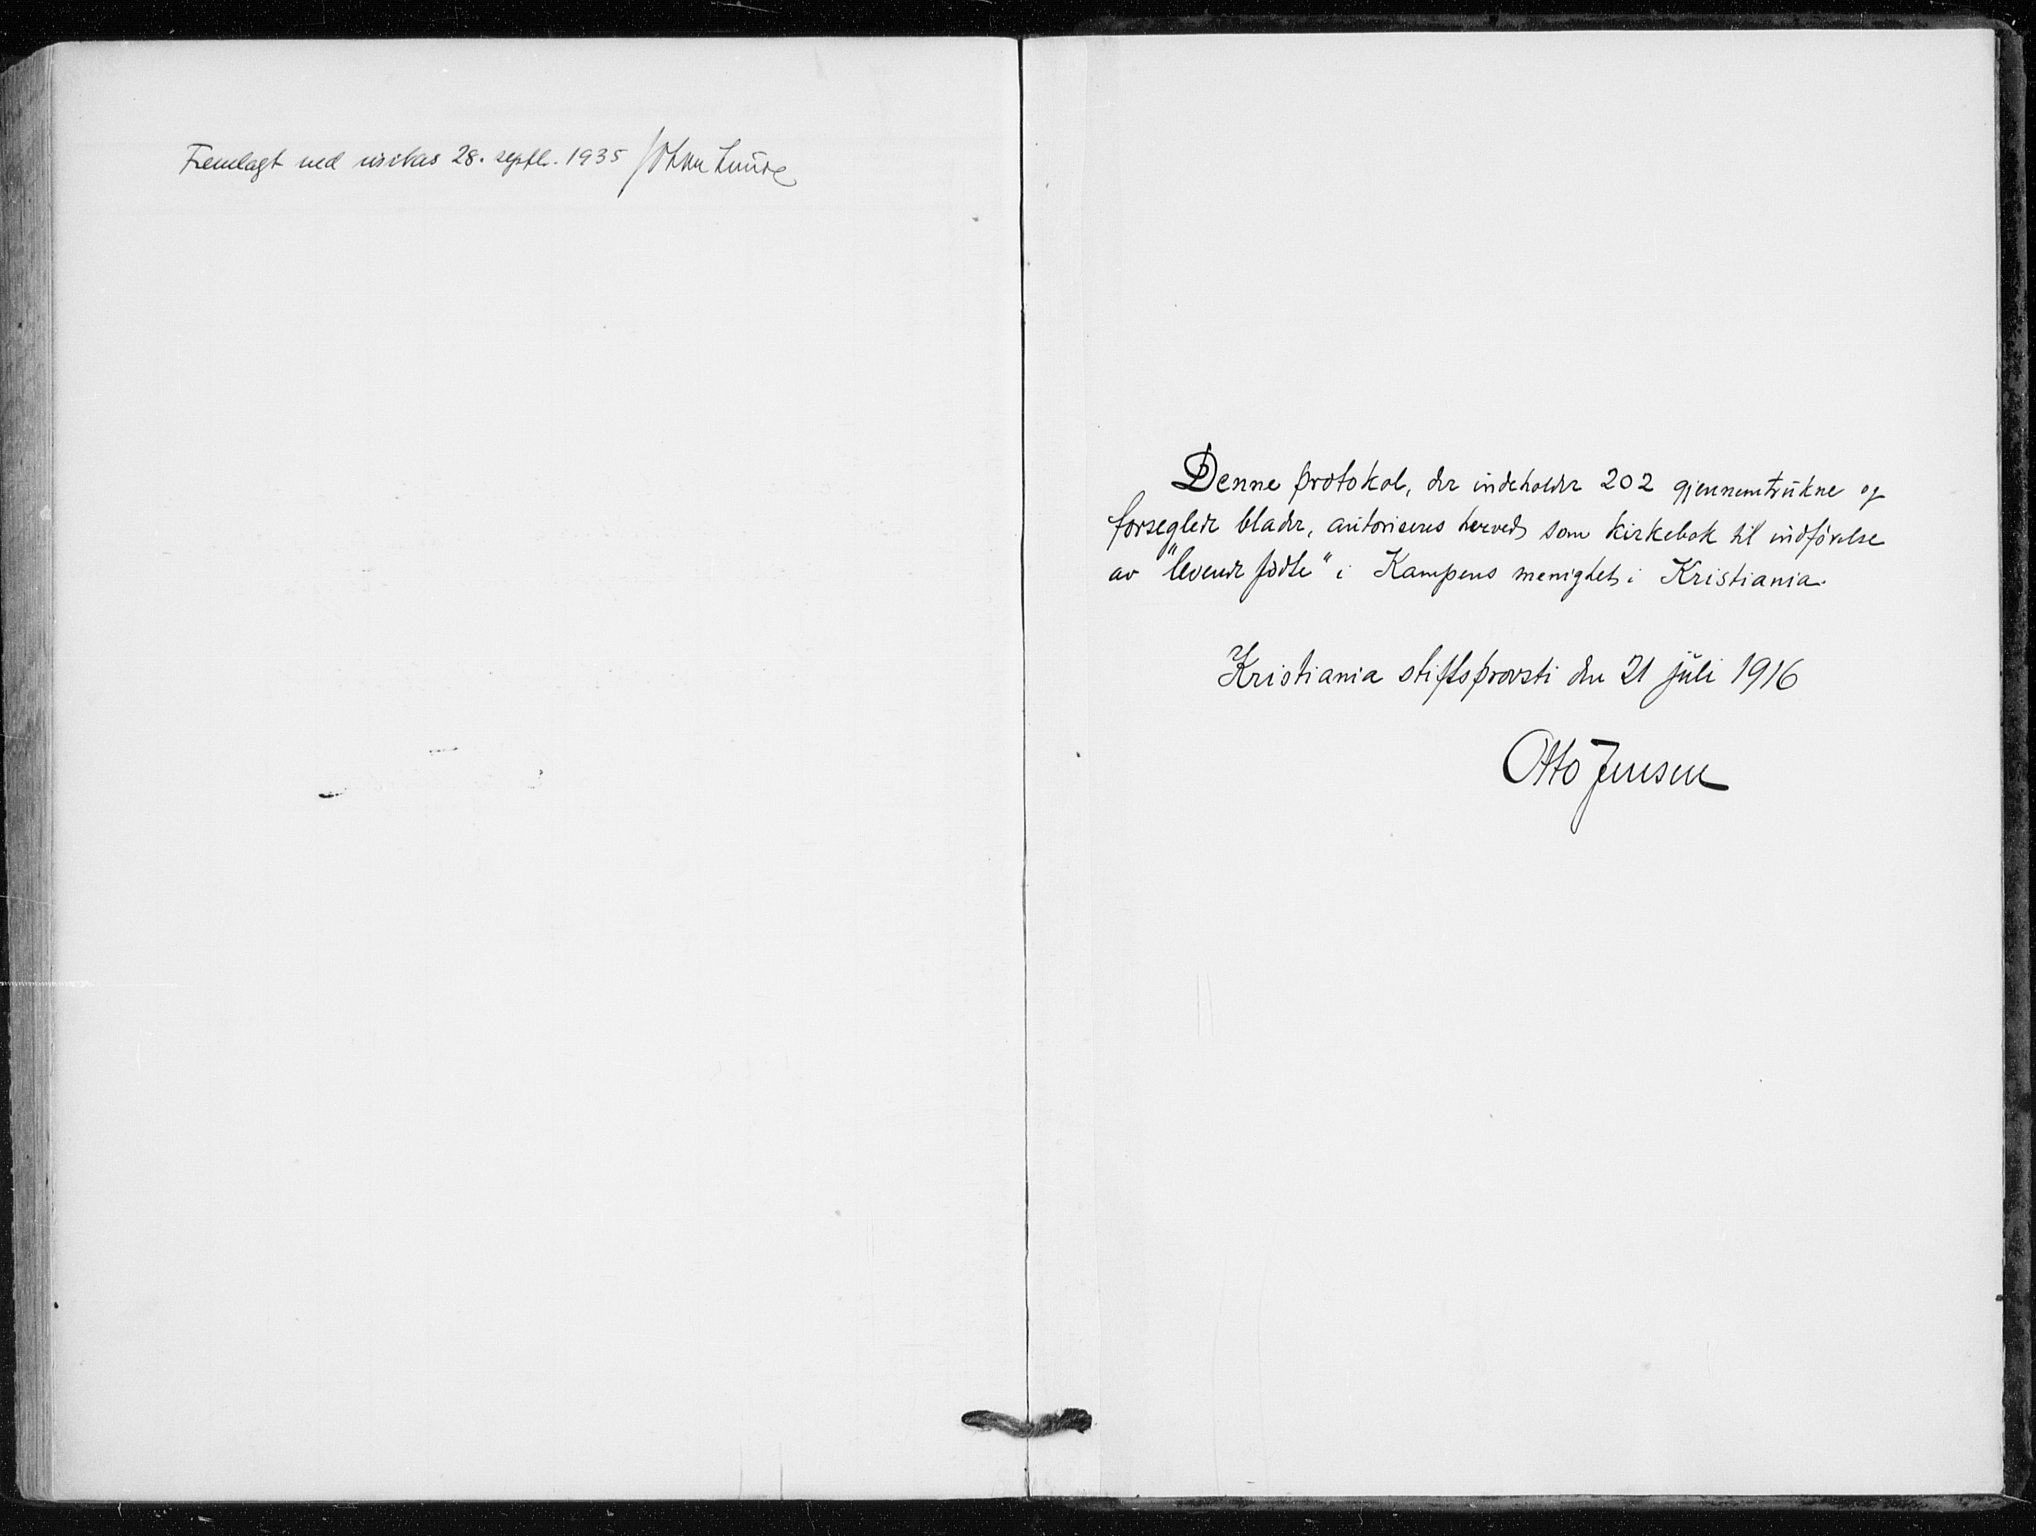 Fremlagt ved visitas 28. septbr. 1935 Johan Lunde
Denne protokol, der indeholder 202 gjennemtrukne og
forseglede blader, autoriseres herved som kirkebok til indførelse
av "levende fødte" i Kampens menighet i Kristiania.
Kristiania stiftsprovsti den 21 juli 1916
Otto Jensen